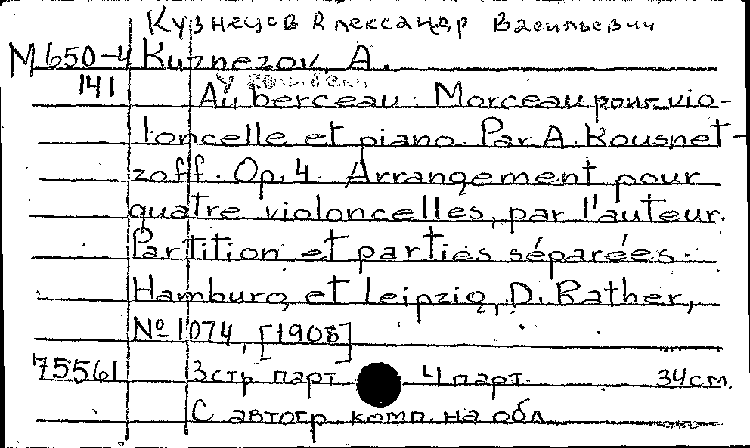 Кузнецов Александр Васильевич
M 650-4 Kuznezov, A.
141 У колыбели
Au berceau. Morceau pour vio-
loncelle et piano. Par A. Kousnet-
zoff. Op. 4. Arrangement pour
quatre violoncelles, par l'auteur.
Partition et parties séparées.
Hamburg et Leipzig, D. Rather,
№ 1074, [1908]
75561 3 стр парт. 4 парт. 34 см.
С автогр комп. на обл